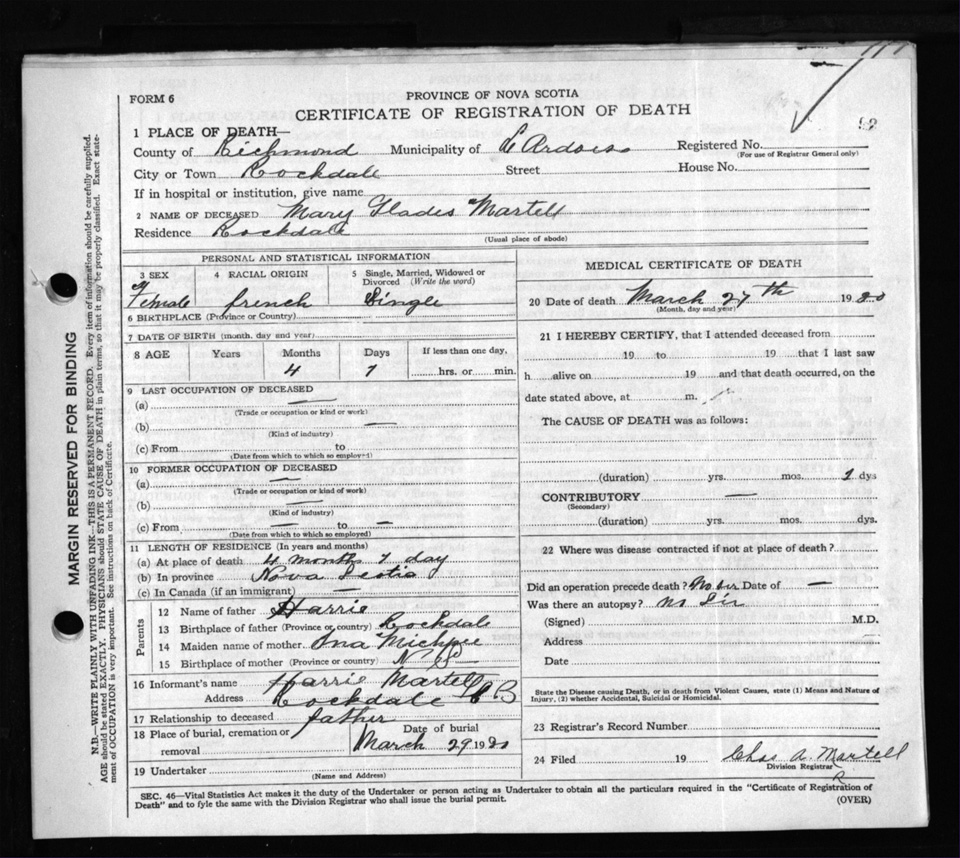 FORM 6
PROVINCE OF NOVA SCOTIA
CERTIFICATE OF REGISTRATION OF DEATH
1 PLACE OF DEATH—
County of Richmond Municipality of L'Ardoise Registered No.
(For use of Registrar General only)
City or Town Rockdale Street House No.
If in hospital or institution, give name
2 NAME OF DECEASED Mary Glades Martell
Residence Rockdale
(Usual place of abode)
PERSONAL AND STATISTICAL INFORMATION
3 SEX 4 RACIAL ORIGIN 5 Single, Married, Widowed or Divorced (Write the word)
Female french Single
6 BIRTHPLACE (Province or Country)
7 DATE OF BIRTH (month, day and year)
8 AGE Years Months Days If less than one day,
4 7 hrs. or min.
9 LAST OCCUPATION OF DECEASED
(a) —
(Trade or occupation or kind or work)
(b) —
(Kind of industry)
(c) From to
(Date from which to which so employed)
10 FORMER OCCUPATION OF DECEASED
(a) —
(Trade or occupation or kind of work)
(b) —
(Kind of industry)
(c) From — to —
(Date from which to which so employed)
11 LENGTH OF RESIDENCE (In years and months)
(a) At place of death 4 months 7 day
(b) In province Nova Scotia
(c) In Canada (if an immigrant) —
Parents
12 Name of father Harrie
13 Birthplace of father (Province or country) Rockdale
14 Maiden name of mother Ona
15 Birthplace of mother (Province or country) N S
16 Informant's name Harrie Martell
Address Rockdale C B
17 Relationship to deceased father
18 Place of burial, cremation or removal Date of burial
March 29 1920
19 Undertaker
(Name and Address)
MEDICAL CERTIFICATE OF DEATH
20 Date of death March 27th 1920
(Month, day and year)
21 I HEREBY CERTIFY, that I attended deceased from
19 to 19 that I last saw
h alive on 19 and that death occurred, on the
date stated above, at m.
The CAUSE OF DEATH was as follows:
(duration) yrs. mos. 1 dys
CONTRIBUTORY —
(Secondary)
(duration) yrs. mos. dys.
22 Where was disease contracted if not at place of death?
Did an operation precede death? No Date of —
Was there an autopsy? no Sir
(Signed) M.D.
Address
Date
State the Disease causing Death, or in death from Violent Causes, state (1) Means and Nature of
Injury, (2) whether Accidental, Suicidal or Homicidal.
23 Registrar's Record Number
24 Filed 19 Chas A. Martell
Division Registrar
SEC. 46—Vital Statistics Act makes it the duty of the Undertaker or person acting as Undertaker to obtain all the particulars required in the "Certificate of Registration of
Death" and to fyle the same with the Division Registrar who shall issue the burial permit.
(OVER)
MARGIN RESERVED FOR BINDING
N.B.—WRITE PLAINLY WITH UNFADING INK—THIS IS A PERMANENT RECORD. Every item of information should be carefully supplied.
AGE should be stated EXACTLY. PHYSICIANS should STATE CAUSE OF DEATH in plain terms, so that it may be properly classified. Exact state-
ment of OCCUPATION is very important. See instructions on back of Certificate.